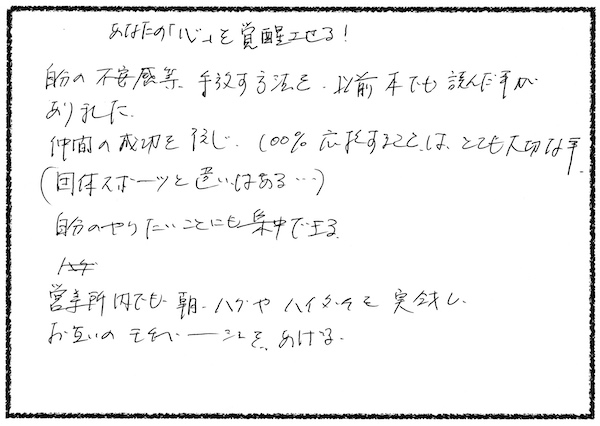 あなたの「心」を覚醒させる!
自分の不安感等、手放す方法を、以前本でも読んだ事が
ありました。
仲間の成功を信じ、100%応援することは、とても大切な事。
(団体スポーツと違いはある…)
自分のやりたいことにも集中できる
ハグ
営業所内でも朝、ハグやハイタッチを実践し、
お互いのモチベーションを、あげる。